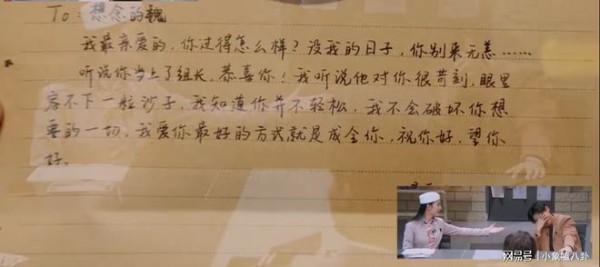 To：想念的魏
我最亲爱的，你过得怎么样？没我的日子，你别来无恙……
听说你当上了组长，恭喜你！我听说他对你很苛刻，眼里
容不下一粒沙子，我知道你并不轻松，我不会破坏你想
要的一切，我爱你最好的方式就是成全你，祝你好，望你
好。
搜狐号@小象破八卦